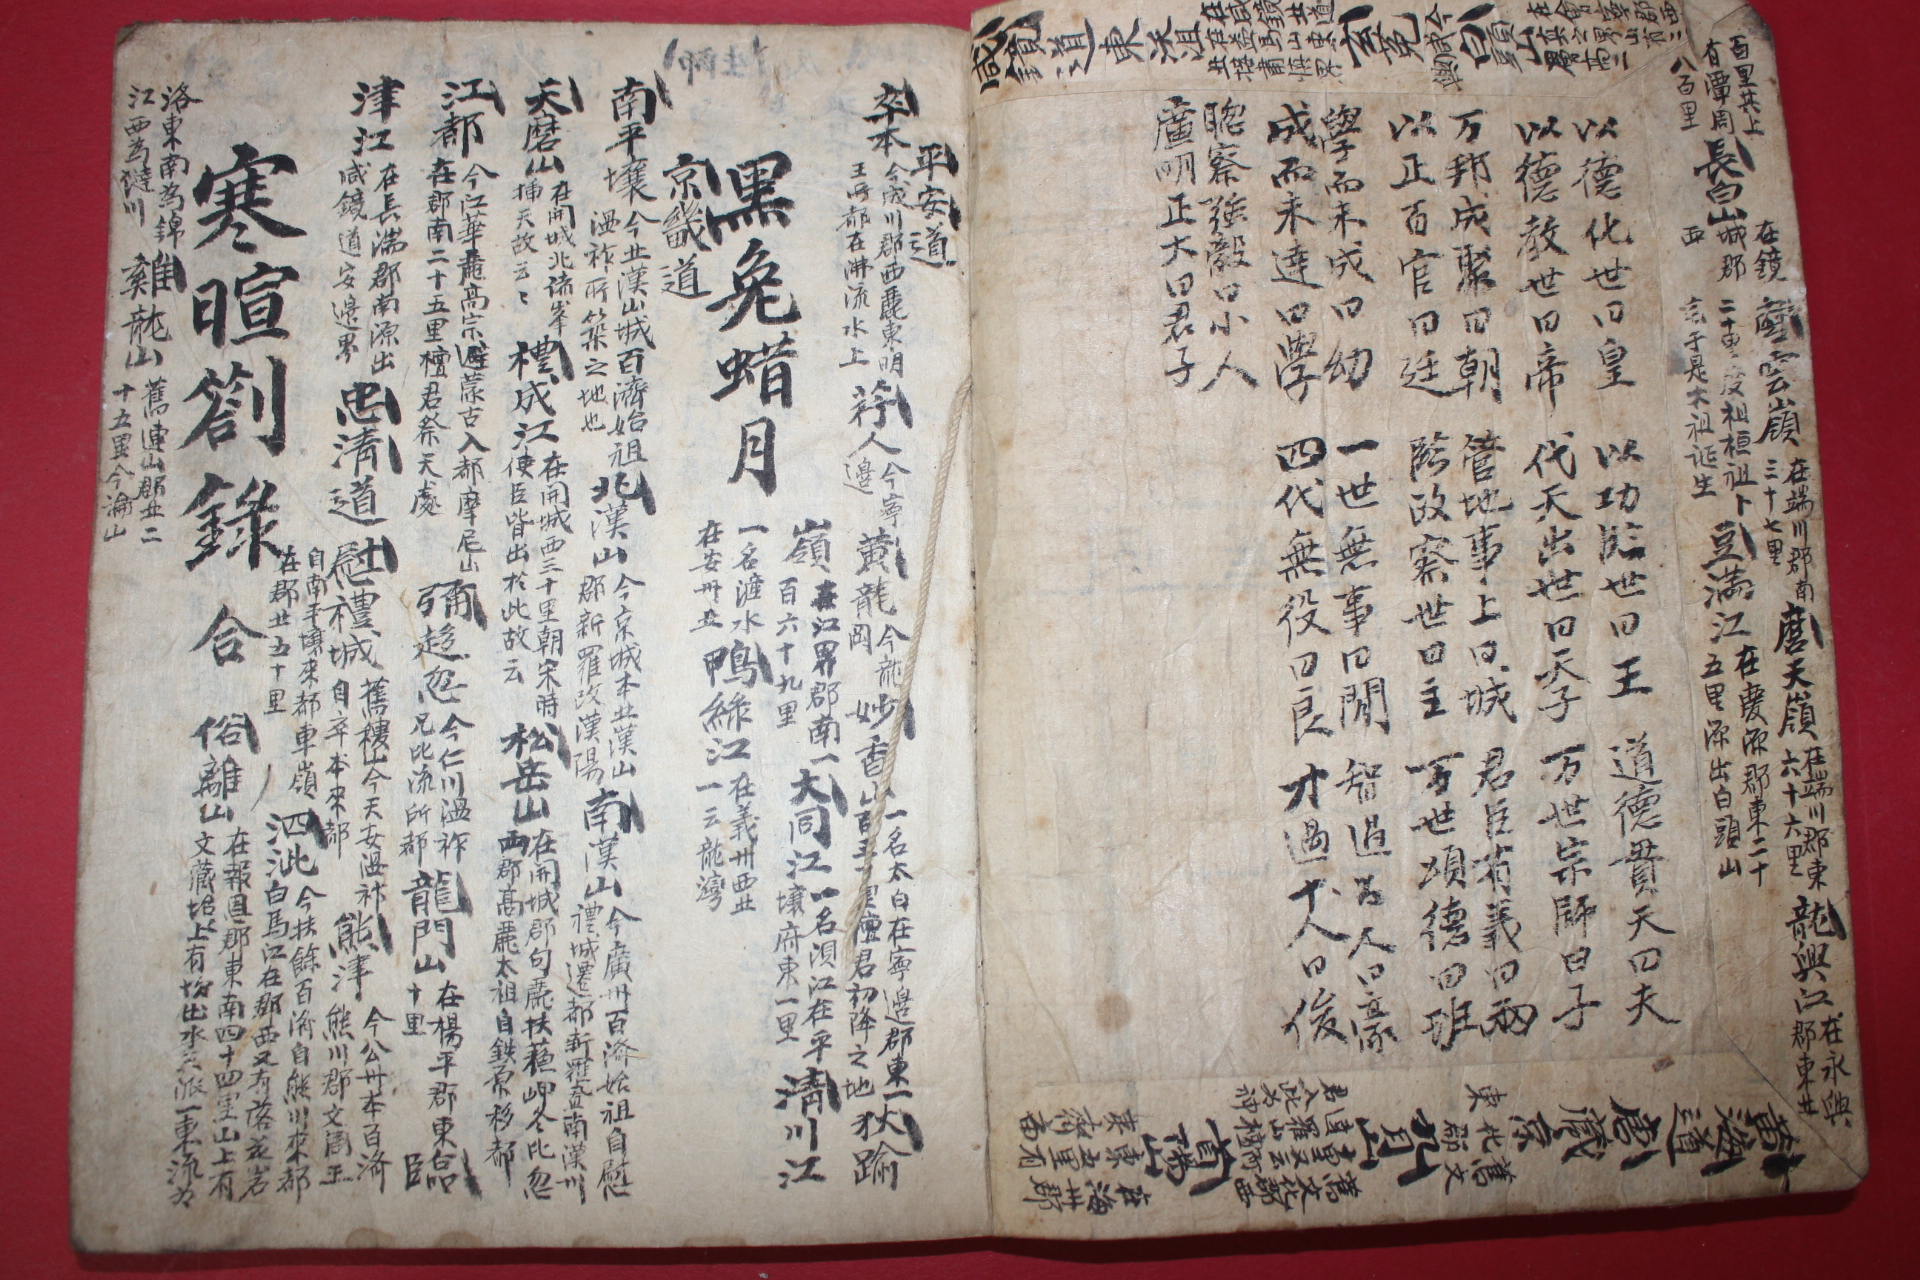 百里其上
有潭周
八百里
長白山
在鏡
城郡
西
雲嶺
在端川郡南
三十七里
二十里度祖桓祖卜
于是太祖誕生
豆満江
在慶源郡東二十
五里源出白頭山
磨天嶺
在端川郡東
六十六里
龍興江
在永興
郡東北
咸鏡道
東沃沮
玄菟
白頭山
以德化世曰皇
以功臨世曰王
道德貫天曰夫
以德教世曰帝
代天出世曰天子
万世宗師曰子
万邦成聚曰朝
管地事上曰城
君臣有義曰兩
以正百官曰廷
臨政察世曰主
万世頌德曰班
學而未成曰幼
一世無事曰閒
智過百人曰豪
成而未達曰學
四代無役曰良
才過十人曰俊
聰察強毅曰小人
廣明正大曰君子
黃海道
唐藏京
九月山
首陽山
平安道
卒本
今成川郡西麗東明
王所都在沸流水上
荇人
今寧
邊
黃龍
今龍
岡
妙香山
一名太白在寧邊郡東一
百三十里檀君初降之地
狄踰
嶺
在江界郡南一
百六十九里
大同江
一名浿江在平
壤府東一里
淸川江
一名漄水
在安州北
鴨綠江
在義州西北
一云龍灣
黑兔蜡月
京畿道
南平壤
今北漢山城百濟始祖
温祚所築之地也
北漢山
今京城本北漢山
郡新羅改漢陽
南漢山
今廣州百济始祖自慰
禮城遷都新羅置南漢州
天磨山
在開城北諸峯
揷天故云云
禮成江
在開城西三十里朝宋時
使臣皆出於此故云
松岳山
在開城郡句麗扶蘇岬今比忽
兩郡高麗太祖自鉄原移都
江都
今江華麗高宗避蒙古入都摩尼山
在郡南二十五里檀君祭天處
彌趍忽
今仁川温祚
兄比流所都
龍門山
在楊平郡東
十里
臨
津江
在長湍郡南源出
咸鏡道安邊界
忠清道
慰禮城
舊稷山今天安温祚
自卒本來都
熊津
今公州本百済
熊川郡文周王
自南平壤來都車嶺
在郡北五十里
泗沘
今扶餘百済自熊川來都
白馬江在郡西又有落花岩
寒暄劄錄
合
俗離山
在報恩郡東南四十四里山上有
文藏坮上有坎出水三派一東流为
洛東南為錦
江西為㺚川
雞龍山
舊連山郡北二
十五里今論山